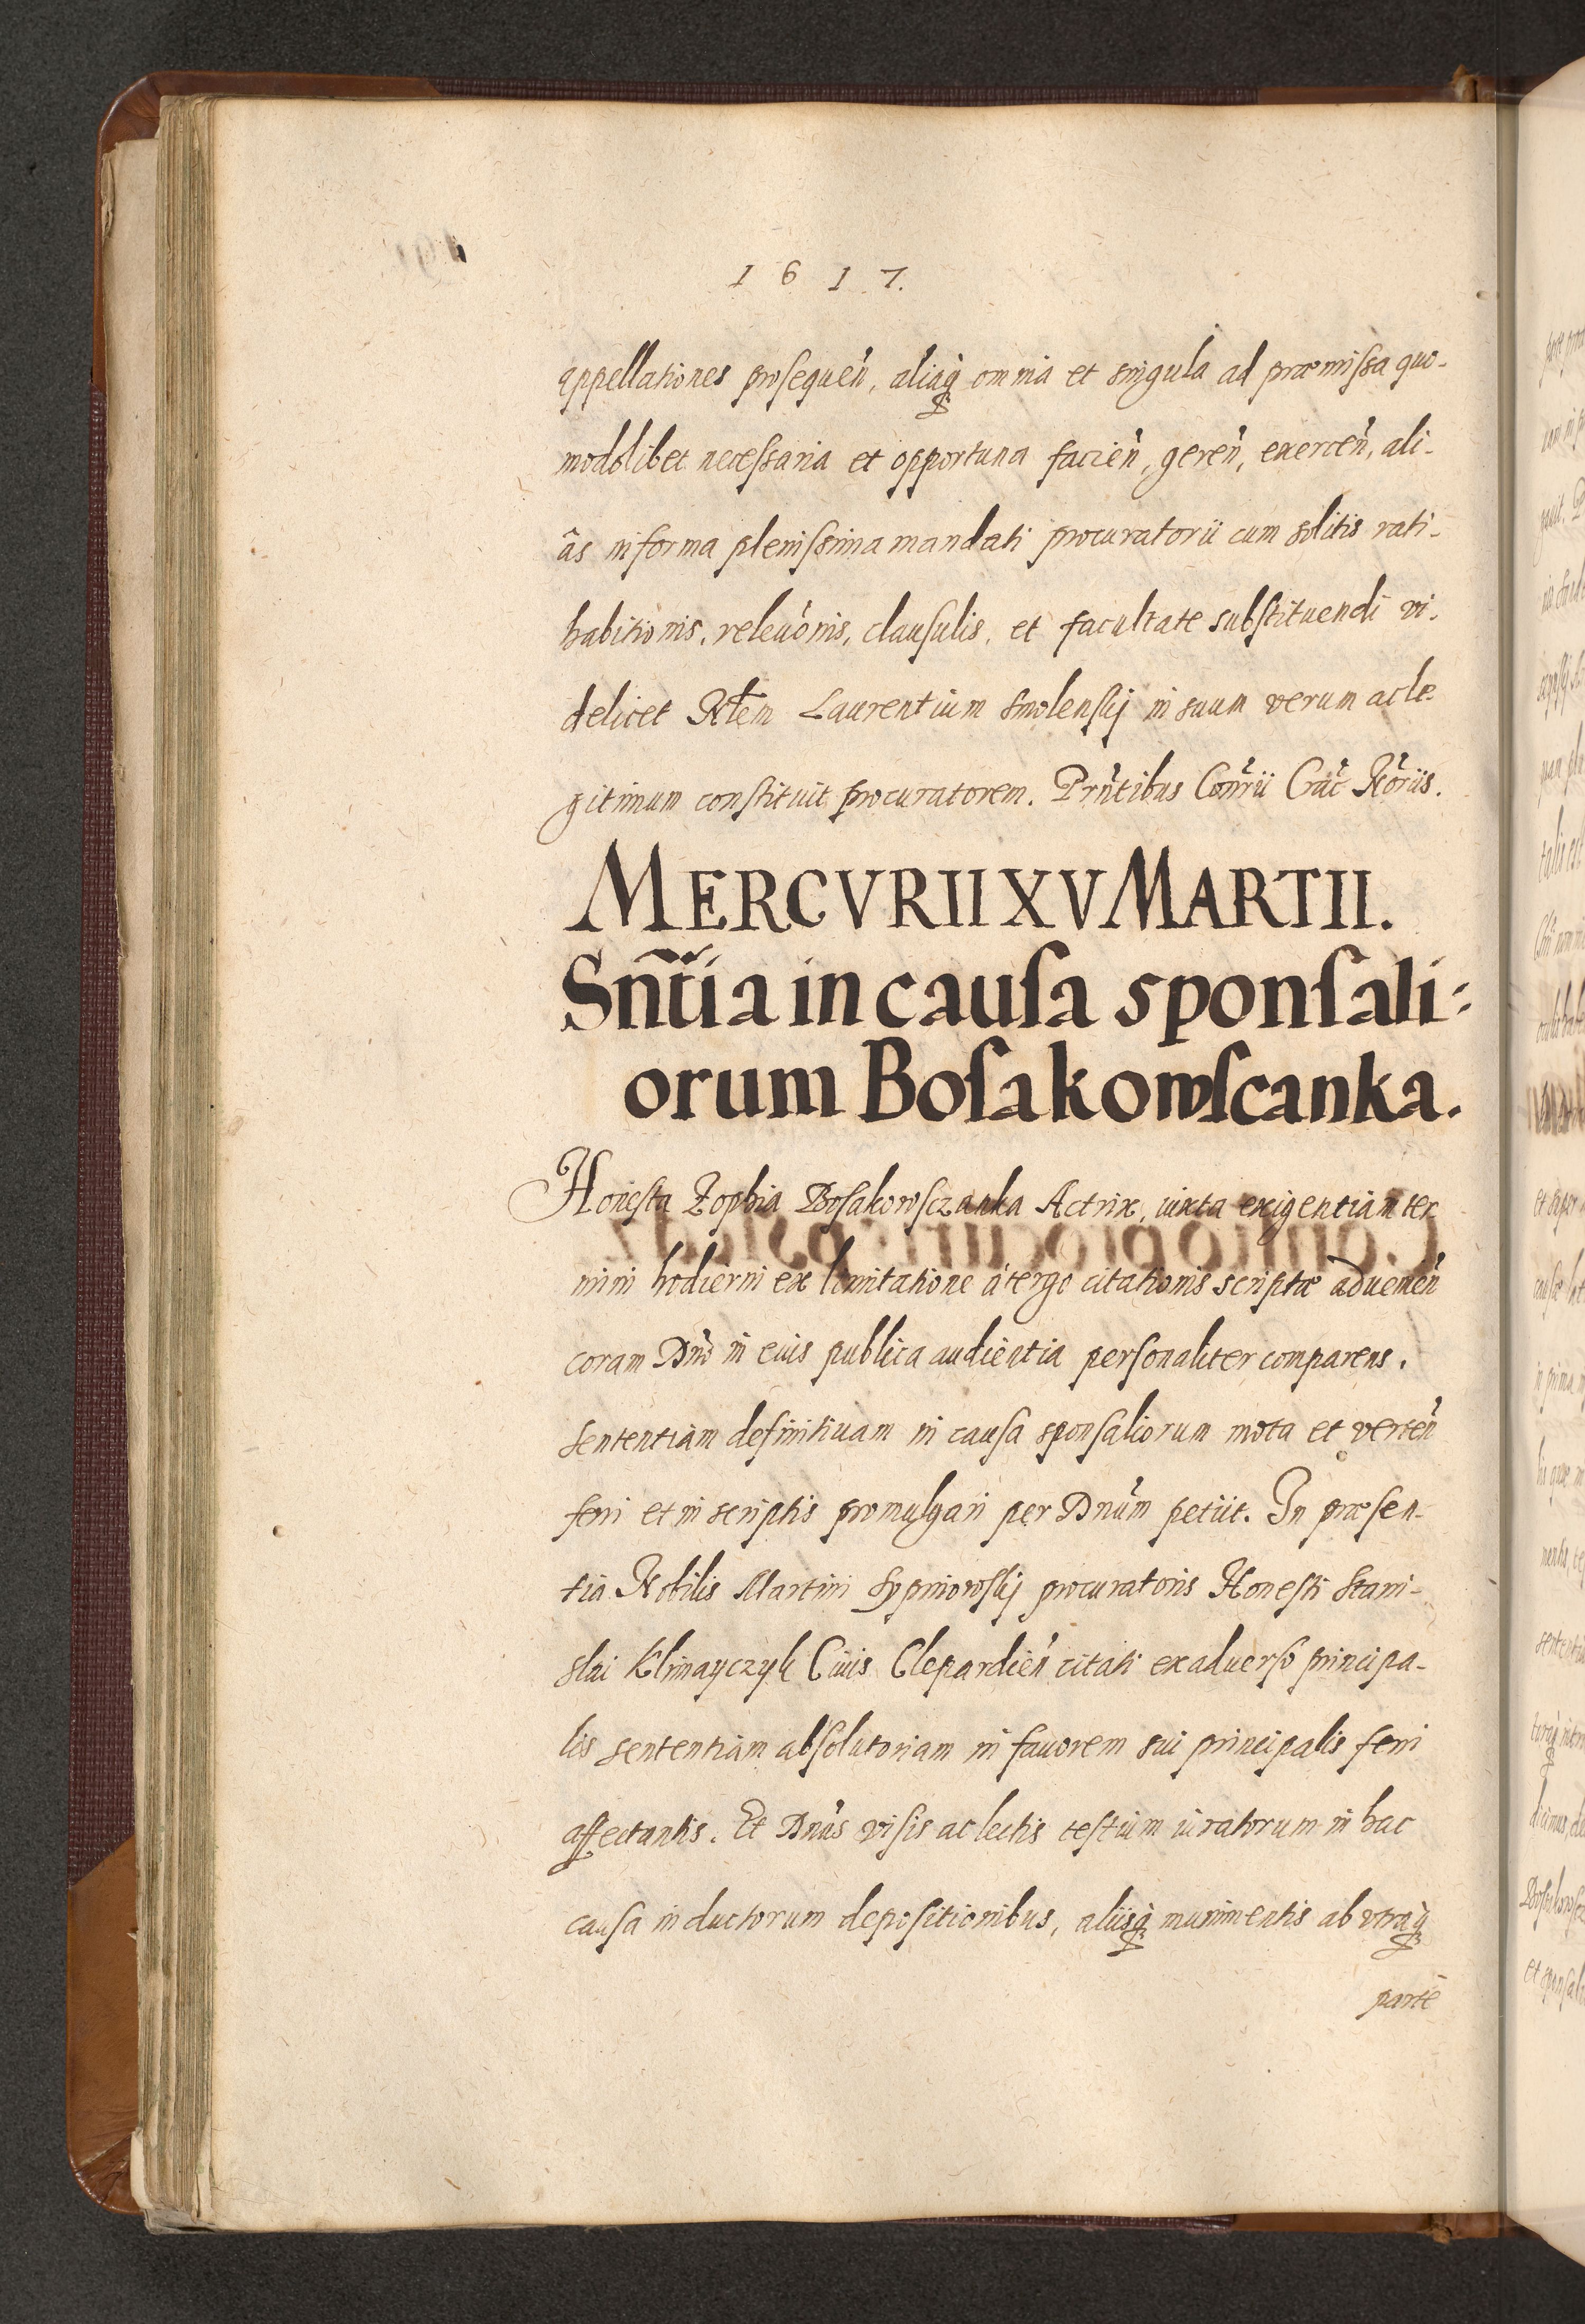 1617.
appellationes prosequeń, aliaq́ꝫ omnia et singula ad præmissa quo-
modolibet necessaria et opportuna facień, gereń, exerceń, ali-
âs in forma plenissima mandati procuratorii cum solitis rati-
habitionis, releuónis, clausulis, et facultate substituendi vi-
delicet Nłem Laurentium Smolenskj in suum verum ac le-
gitimum constituit procuratorem. Prńtibus Cońrii Crać Nóriis.
MERCVRII XV MARTII.
Sñtia in causa sponsali-
orum Bosakowscanka.
Honesta Zophia Bosakowsczanka Actrix, iuxta exigentiam ter
mini hodierni ex limitatione á tergo citationis scriptæ adueneń
coram Dńo in eius publica audientia personaliter comparens.
sententiam definitiuam in causa sponsaliorum mota et verteń
ferri et in scriptis promulgari per Dńum petiit. In præsen-
tia Nobilis Martini Sypniowskj procuratoris Honesti Stani-
slai Klimayczyk Ciuis Clepardień citati ex aduerso principa-
lis sententiam absolutoriam in fauorem sui principalis ferri
affectantis. Et Dńus visis ac lectis testium iuratorum in hac
causa inductorum depositionibus, aliisq́ꝫ munimentis ab vtraq́ꝫ
parte